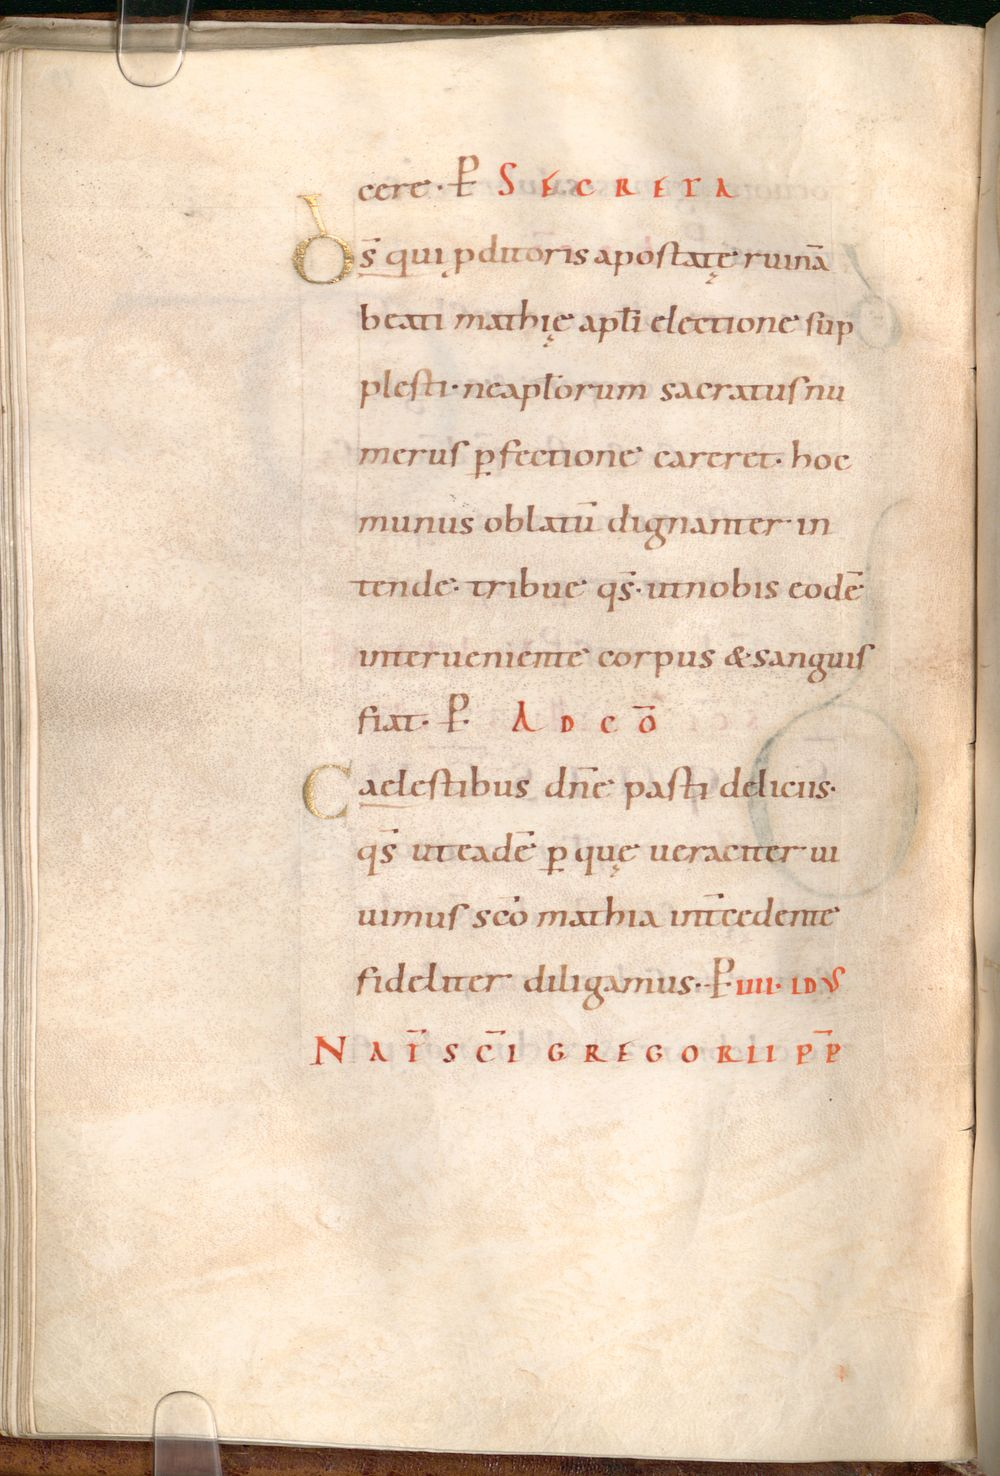 cere · P̄ SECRETA
D̄s̄ qui ꝓditoris apostatę ruinā
beati mathię apłi electione sup
plesti · ne apłorum sacratus nu
merus ꝑfectione careret · hoc
munus oblatū dignanter in
tende · tribue qs̄ · ut nobis eodē
interueniente corpus & sanguis
fiat · P̄ · AD CŌ
Caelestibus dn̄e pasti deliciis ·
qs̄ ut eadē ꝑ quę ueraciter ui
uimus sc̄o mathia int̄cedente
fideliter diligamus · P̄ · IIII · IDUS
NAT̄ SC̄I GREGORII PP̄